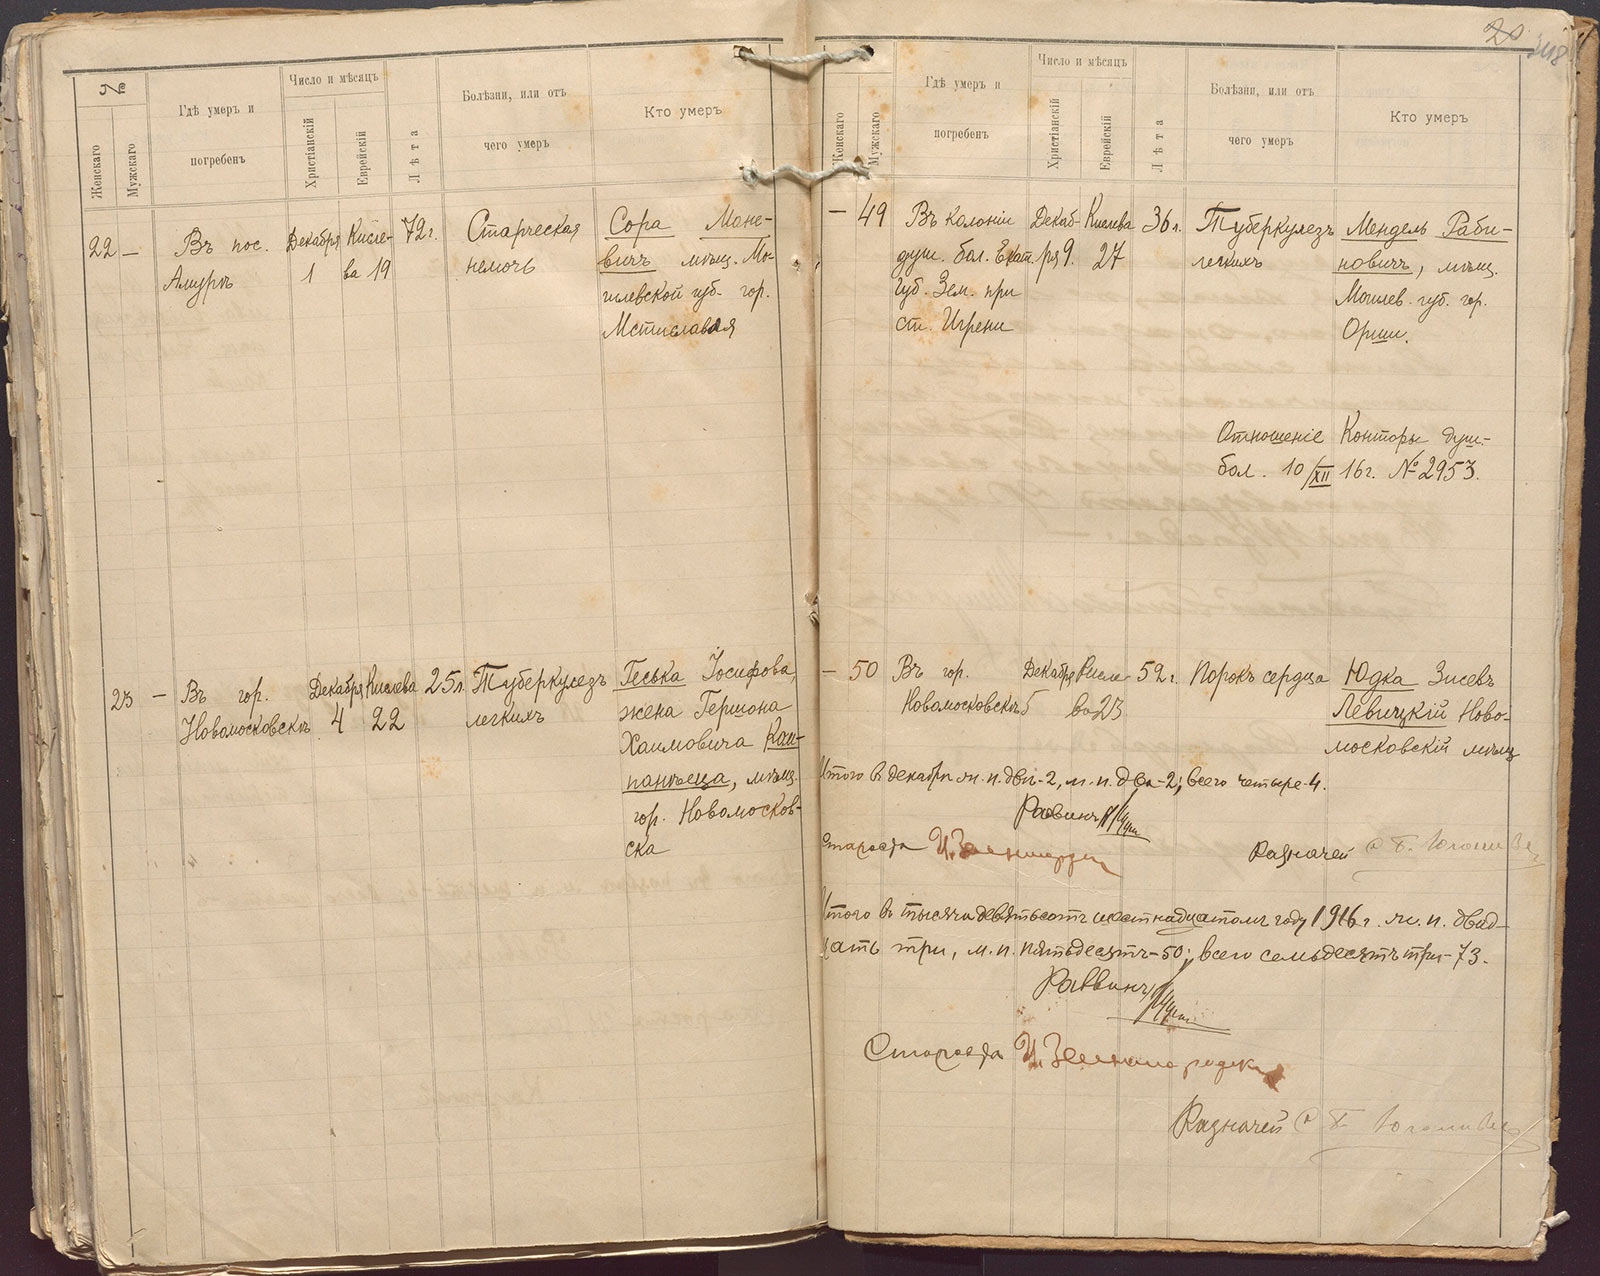 №
Женскаго
Мужскаго
Гдѣ умеръ и
погребенъ
Число и мѣсяцъ
Христіанскій
Еврейскій
Лѣта
Болѣзни, или отъ
чего умеръ
Кто умеръ
22 —
Въ пос.
Амурѣ
Декабря
1
Кисле-
ва 19
72 г.
Старческая
немочь
Сора Мане-
вичъ мѣщ. Мо-
гилевской губ. гор.
Мстиславля
23 —
Въ гор.
Новомосковскѣ
Декабря
4
Кислева
22
25 л.
Туберкулезъ
легкихъ
Геська Іосифова,
жена Гершона
Хаимовича
мѣщ.
гор. Новомосков-
ска
20
Женскаго
Мужскаго
Гдѣ умеръ и
погребенъ
Число и мѣсяцъ
Христіанскій
Еврейскій
Лѣта
Болѣзни, или отъ
чего умеръ
Кто умеръ
— 49
Въ колоніи
душ. бол. Екат.
Губ. Зем. при
ст. Игрени
Декаб-
ря 9.
Кислева
27
36 л.
Туберкулезъ
легкихъ
Мендель Раби-
новичъ, мѣщ.
Могилев. губ. гор.
Орши.
Отношеніе Конторы душ.-
бол. 10/XII 16 г. № 2953.
— 50
Въ гор.
Новомосковскѣ
Декабря
5
Кисле-
ва 23
52 г.
Порокъ сердца
Юдка Зисевъ
Левицкій Ново-
московскій мѣщ
Итого въ декабрѣ ж. п. двѣ-2, м. п. два-2; всего четыре-4.
Раввинъ
Староста
Казначей
Итого въ тысяча девятьсотъ шестнадцатомъ году 1916 г. ж. п. двад-
цать три, м. п. пятьдесятъ-50; всего семьдесятъ три-73.
Раввинъ
Староста
Казначей